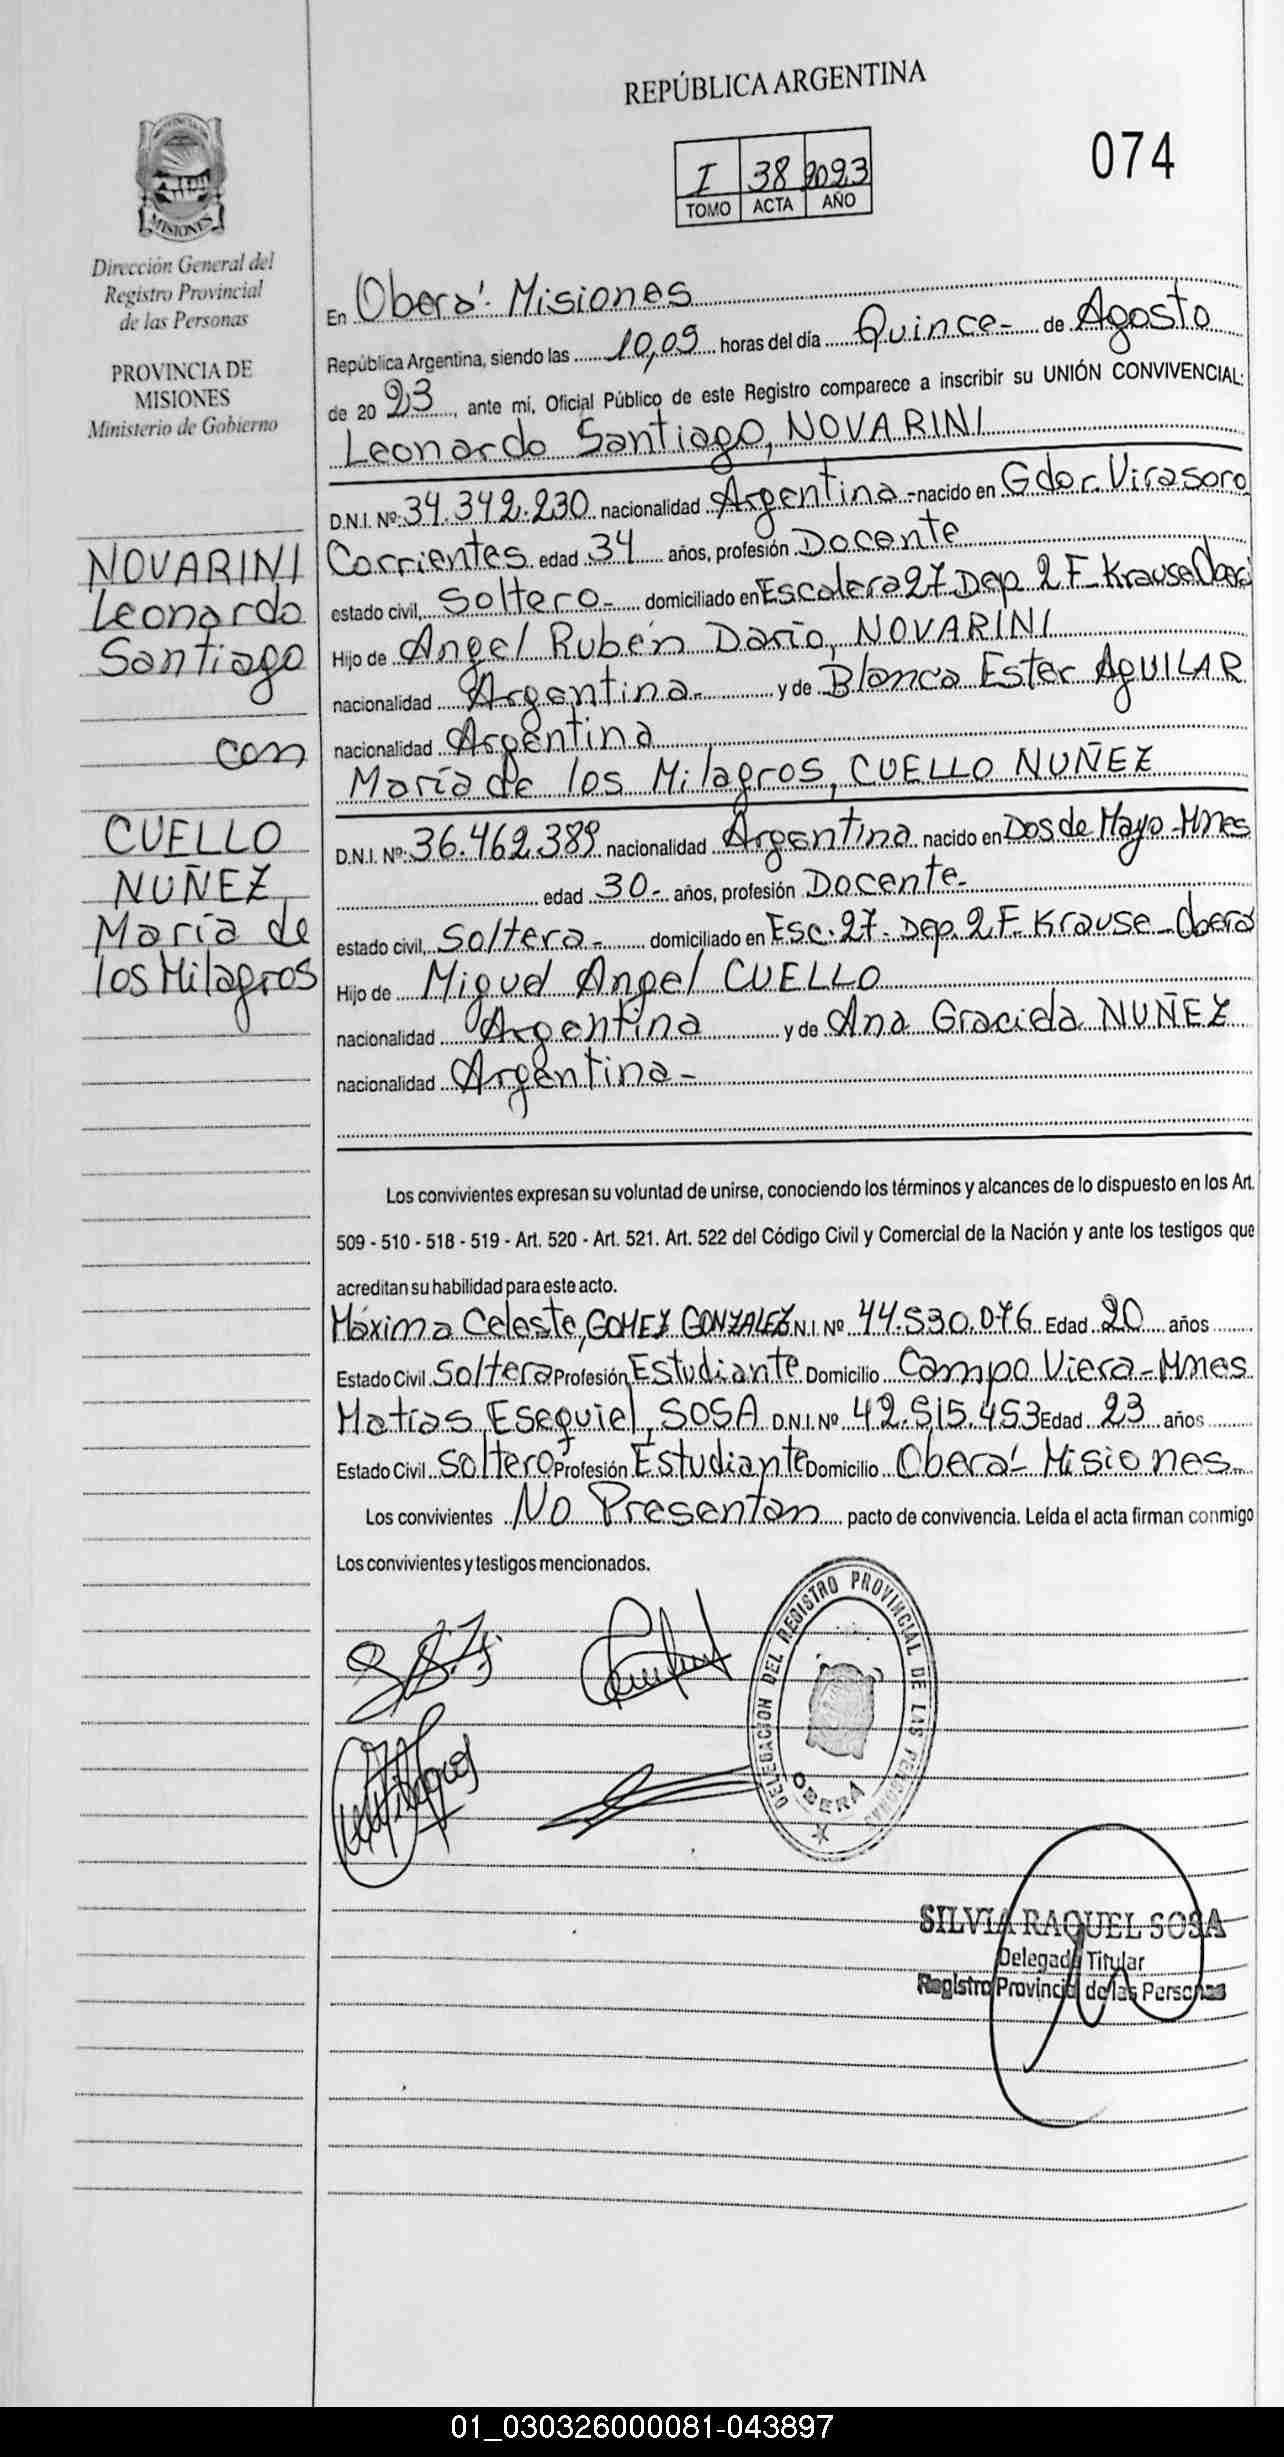 REPÚBLICA ARGENTINA
074
I 38 2023
TOMO ACTA AÑO
PROVINCIA DE MISIONES
Dirección General del
Registro Provincial
de las Personas
PROVINCIA DE
MISIONES
Ministerio de Gobierno
NOVARINI
Leonardo
Santiago
con
CUELLO
NUÑEZ
María de
los Milagros
En Oberá. Misiones
República Argentina, siendo las 10,09 horas del día Quince- de Agosto
de 2023, ante mí, Oficial Público de este Registro comparece a inscribir su UNIÓN CONVIVENCIAL:
Leonardo Santiago, NOVARINI
D.N.I. Nº: 34.342.230 nacionalidad Argentina - nacido en Gdor. Virasoro
Corrientes edad 34 años, profesión Docente
estado civil, Soltero- domiciliado en Escalera 27 Dep 2 F- Krause Oberá
Hijo de Angel Rubén Dario, NOVARINI
nacionalidad Argentina- y de Blanca Ester AGUILAR
nacionalidad Argentina
María de los Milagros, CUELLO NUÑEZ
D.N.I. Nº: 36.462.389 nacionalidad Argentina nacido en Dos de Mayo - Mnes
edad 30- años, profesión Docente-
estado civil, Soltera- domiciliado en Esc. 27- Dep. 2 F- Krause - Oberá
Hijo de Miguel Angel CUELLO
nacionalidad Argentina y de Ana Graciela NUÑEZ
nacionalidad Argentina-
Los convivientes expresan su voluntad de unirse, conociendo los términos y alcances de lo dispuesto en los Art.
509 - 510 - 518 - 519 - Art. 520 - Art. 521. Art. 522 del Código Civil y Comercial de la Nación y ante los testigos que
acreditan su habilidad para este acto.
Máxima Celeste, GOMEZ GONZALEZ N.I. Nº 44.530.076 Edad 20 años
Estado Civil Soltera Profesión Estudiante Domicilio Campo Viera - Mnes
Matías Esequiel, SOSA D.N.I. Nº 42.515.453 Edad 23 años
Estado Civil Soltero Profesión Estudiante Domicilio Oberá- Misiones-
Los convivientes No Presentan pacto de convivencia. Leída el acta firman conmigo
Los convivientes y testigos mencionados.
DELEGACION DEL REGISTRO PROVINCIAL DE LAS PERSONAS
OBERA
SILVIA RAQUEL SOSA
Delegada Titular
Registro Provincial de las Personas
01_030326000081-043897